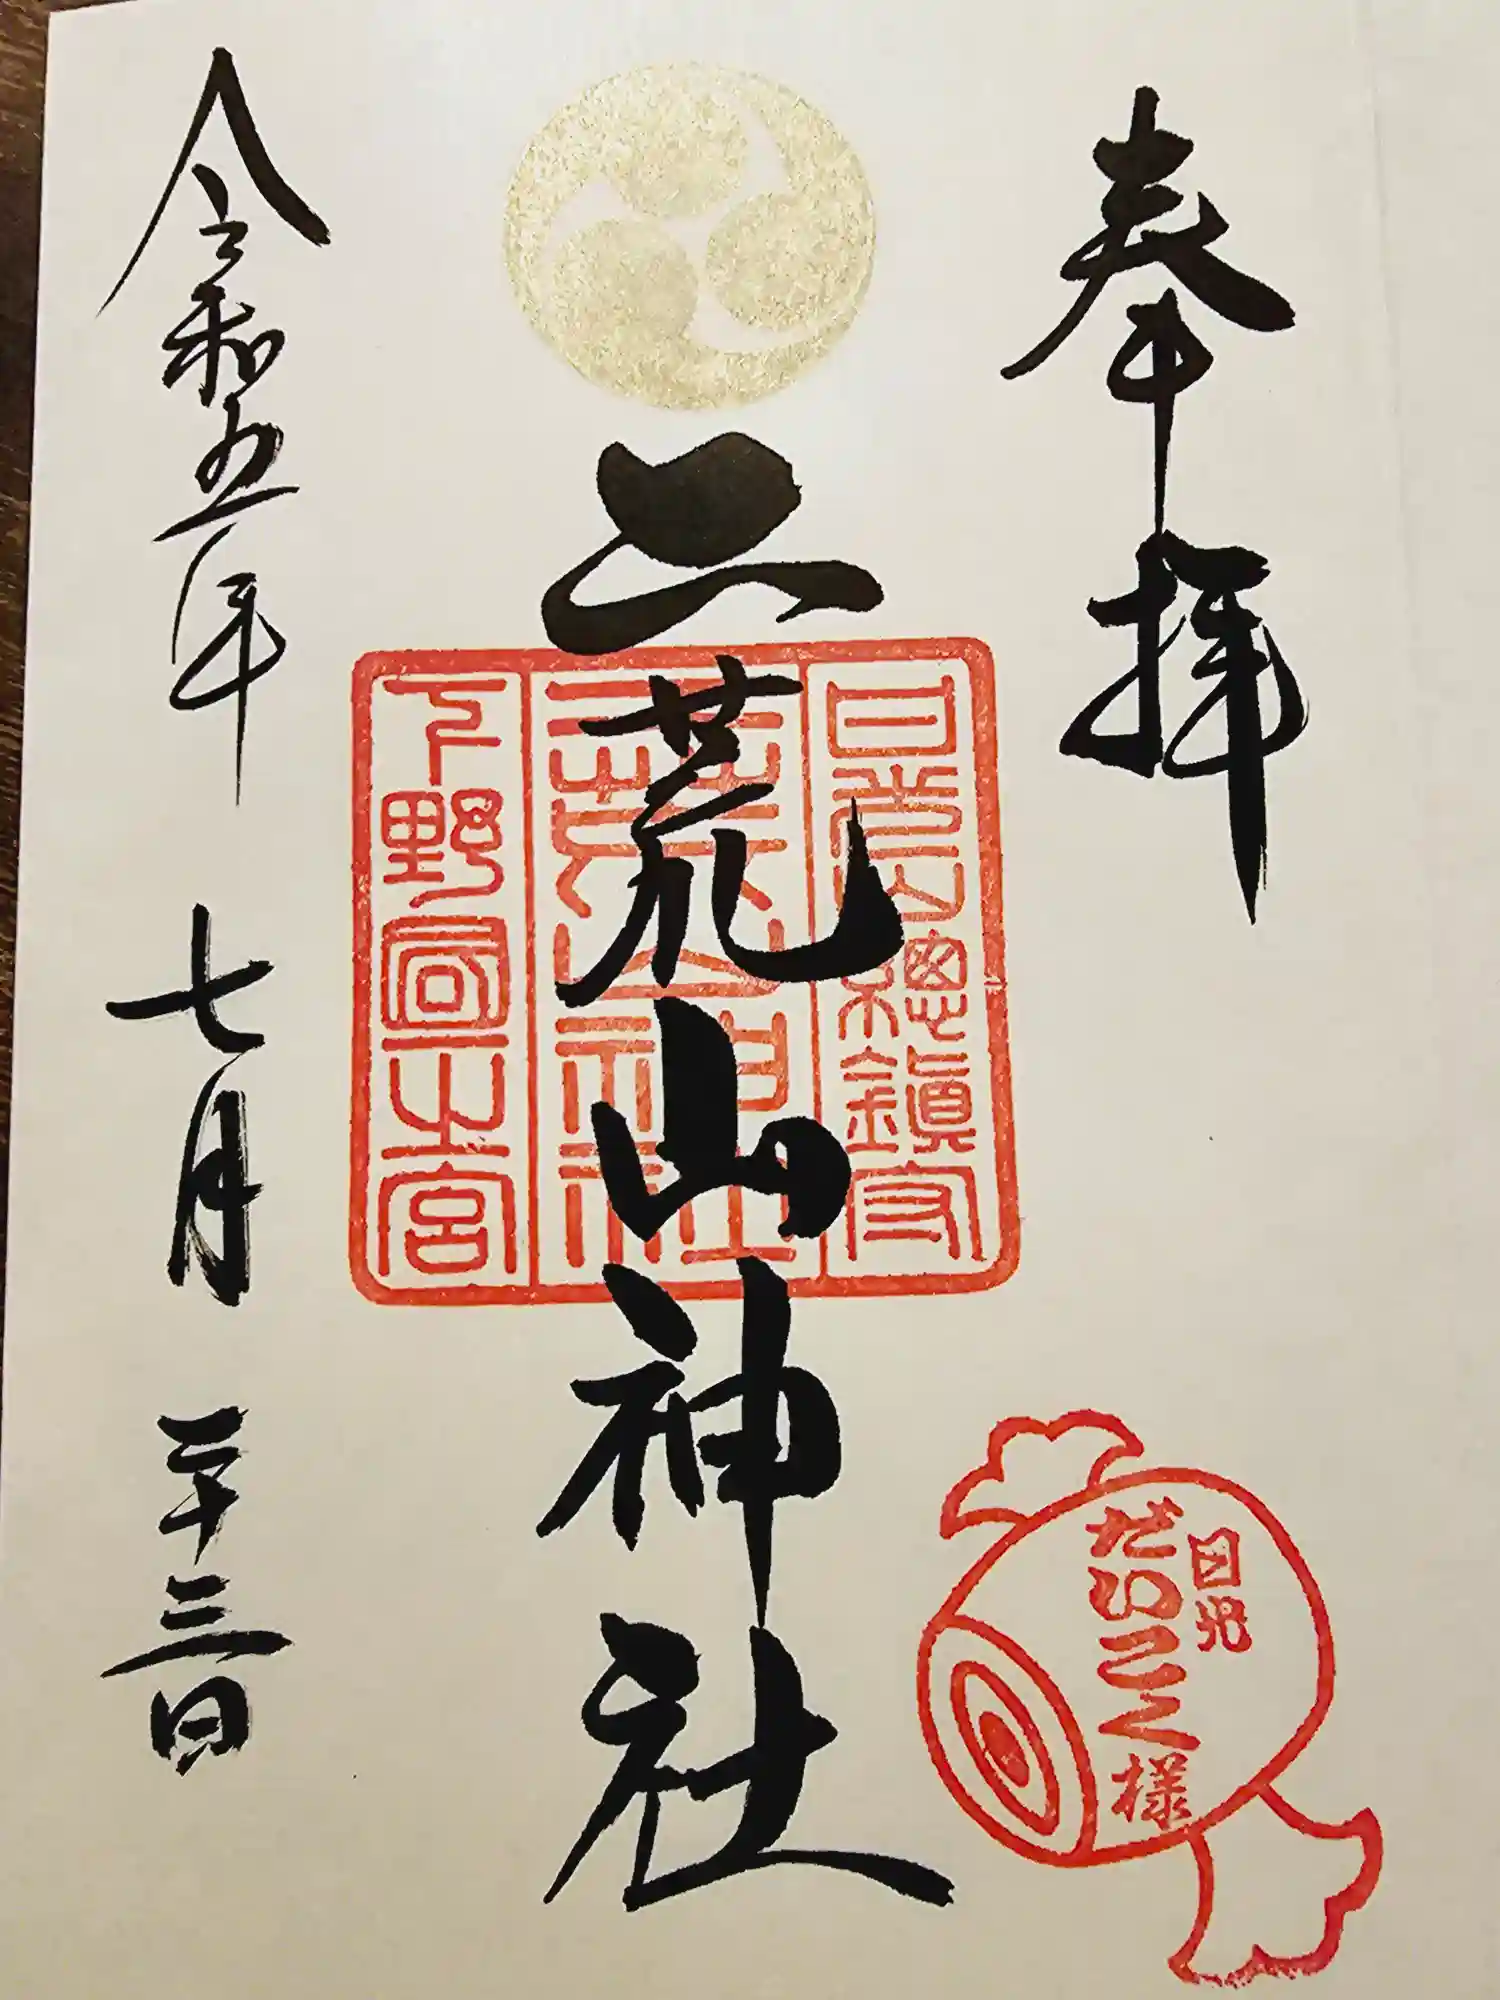 奉拝
二荒山神社
令和五年 七月 二十三日
日光山總鎮守
二荒山神社
下野國一之宮
日光
だいこく様